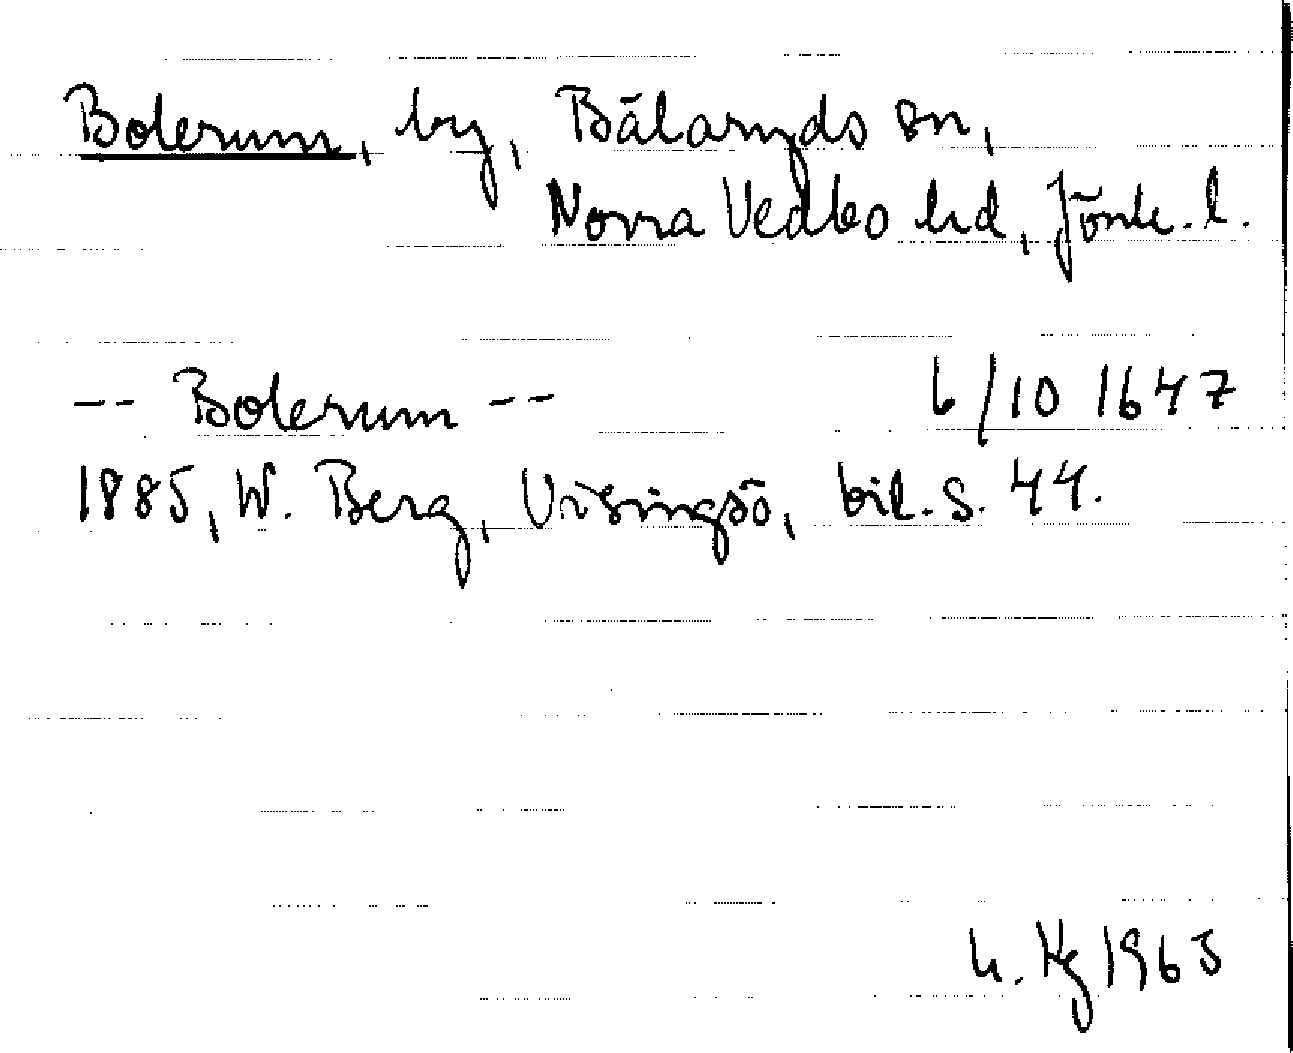 Bolerum, by, Bälaryds sn,
Norra Vedbo hd, Jönk. l.
-- Bolerum -- 6/10 1647
1885, W. Berg, Visingsö, bil. s. 44.
1965